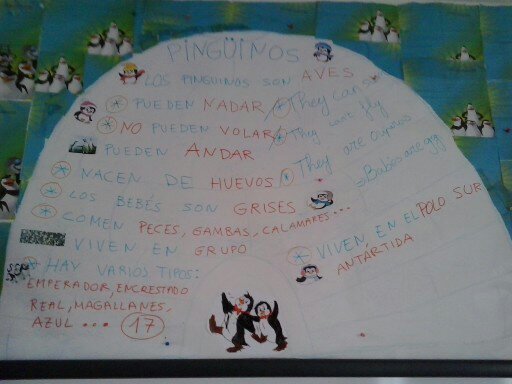 PINGÜINOS
LOS PINGUINOS SON AVES
PUEDEN NADAR
They can swim
NO PUEDEN VOLAR
They fly
PUEDEN ANDAR
They are
NACEN DE HUEVOS
Babies are
LOS BEBÉS SON GRISES
COMEN PECES, GAMBAS, CALAMARES...
VIVEN EN GRUPO
VIVEN EN EL POLO SUR
ANTÁRTIDA
HAY VARIOS TIPOS:
EMPERADOR, ENCRESTADO
REAL, MAGALLANES,
AZUL ... 17